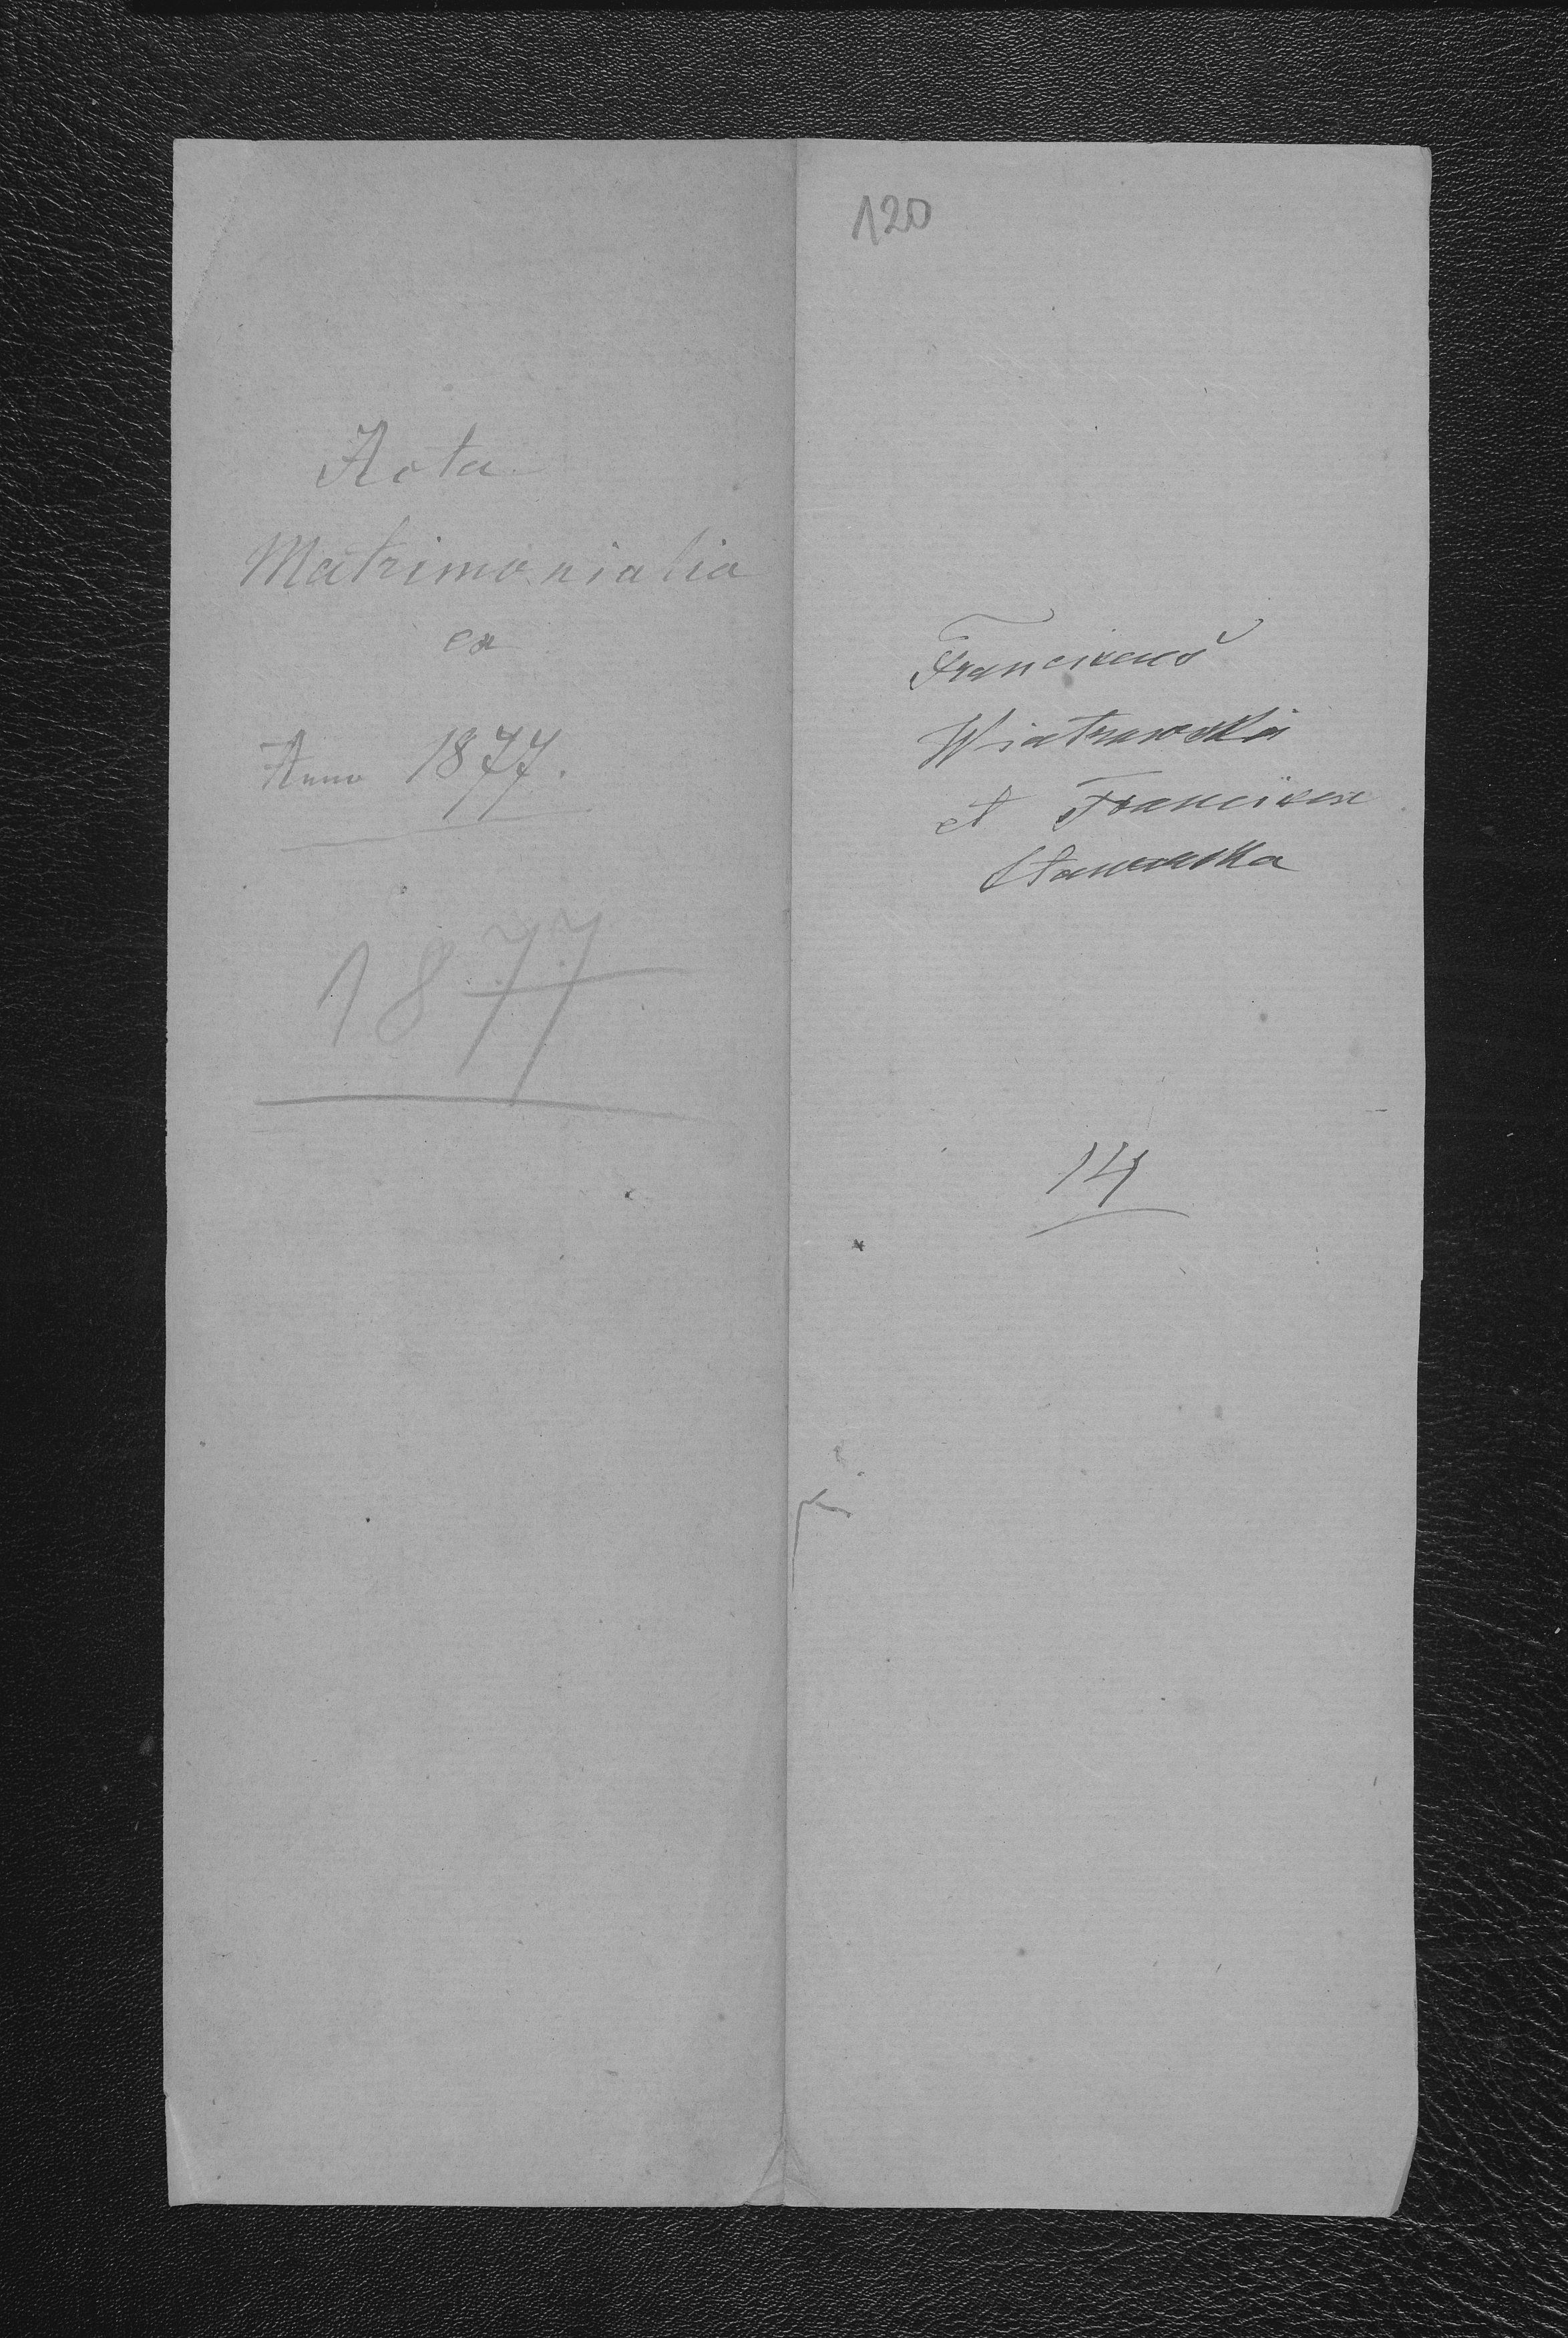 Acta
Matrimonialia
ex
Anno 1877.
1877
120
Franciscus
Wiatrowski
et Francisca
14